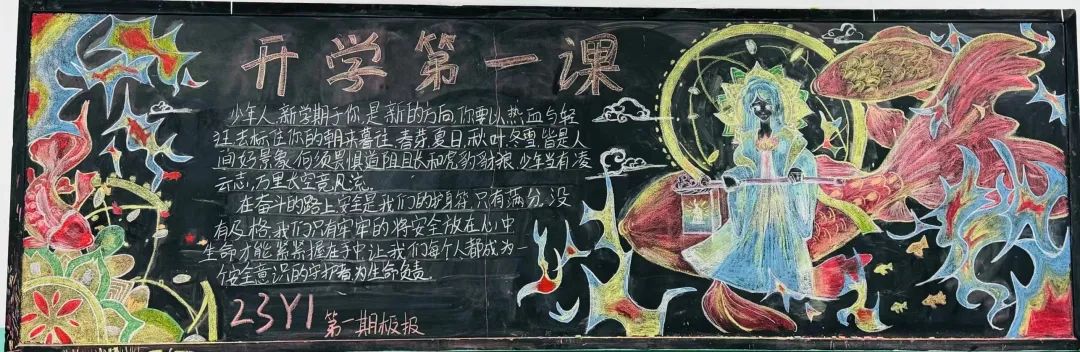 开学第一课
少年人,新学期于你,是新的方向,你要以热血与轻
狂去标住你的朝来暮往,春芽,夏日,秋叶,冬雪,皆是人
间好景象,何须畏惧道阻且长和虎豹豺狼,少年当有凌
云志,万里长空竞风流。
在奋斗的路上安全是我们的护身符,只有满分,没
有及格,我们只有牢牢的将安全放在心中
生命才能紧紧握在手中,让我们每个人都成为一
个安全意识的守护者为生命负责
23Y1 第一期板报